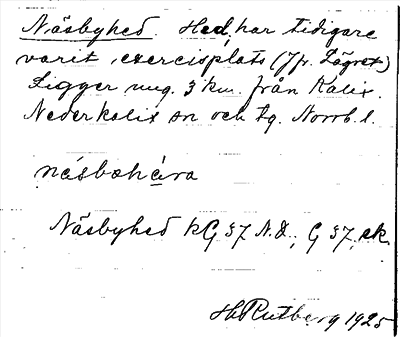 Näsbyhed. Hed, har tidigare
varit exercisplats (Jfr. Lägret)
Ligger ung. 3 km. från Kalix.
Nederkalix sn och tg. Norrb. l.
näsbæhéra
Näsbyhed kG 37 N.D.; G 37, ek.
H Rutberg 1925